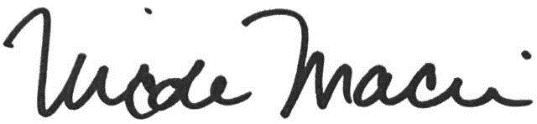 Nicole Macri